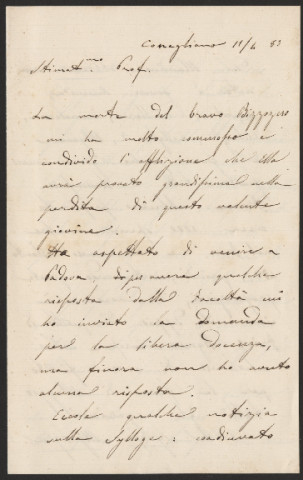 Conegliano 11/4 83
Stimat.mo Prof.
La morte del bravo Bizzozero
mi ha molto commosso e
condivido l'afflizione che Ella
avrà provato grandissima nella
perdita di questo valente
giovine.
Ho aspettato di venire a
Padova di poi avere qualche
risposta dalla Facoltà cui
ho inviato la domanda
per la libera docenza,
ma finora non ho avuto
alcuna risposta.
Eccole qualche notizia
sulla Sylloge: coadiuvato